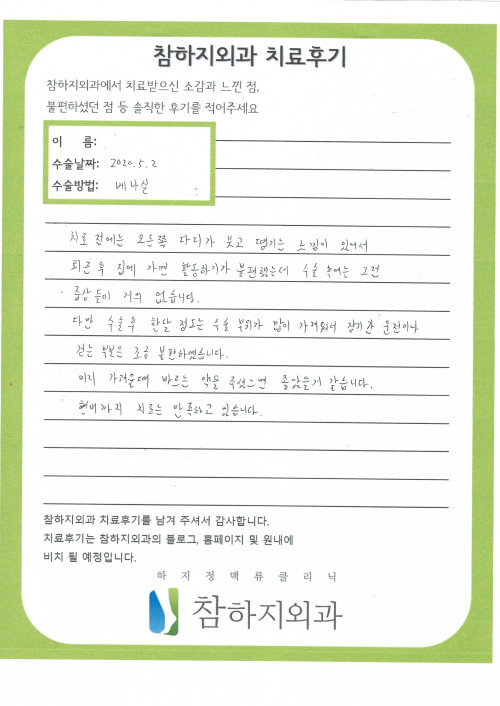 참하지외과 치료후기
참하지외과에서 치료받으신 소감과 느낀 점,
불편하셨던 점 등 솔직한 후기를 적어주세요
이 름:
수술날짜: 2020.5.2
수술방법: 베나실
치료 전에는 오른쪽 다리가 붓고 땡기는 느낌이 있어서
퇴근 후 집에 가면 활동하기가 불편했는데 수술 후에는 그런
증상들이 거의 없습니다.
다만 수술 후 한달 정도는 수술 부위가 많이 가려워서 장기간 운전이나
걷는 부분은 조금 불편하였습니다.
미리 가려울때 바르는 약을 주셨으면 좋았을거 같습니다.
현재까지 치료는 만족하고 있습니다.
참하지외과 치료후기를 남겨 주셔서 감사합니다.
치료후기는 참하지외과의 블로그, 홈페이지 및 원내에
비치 될 예정입니다.
하지정맥류클리닉
참하지외과